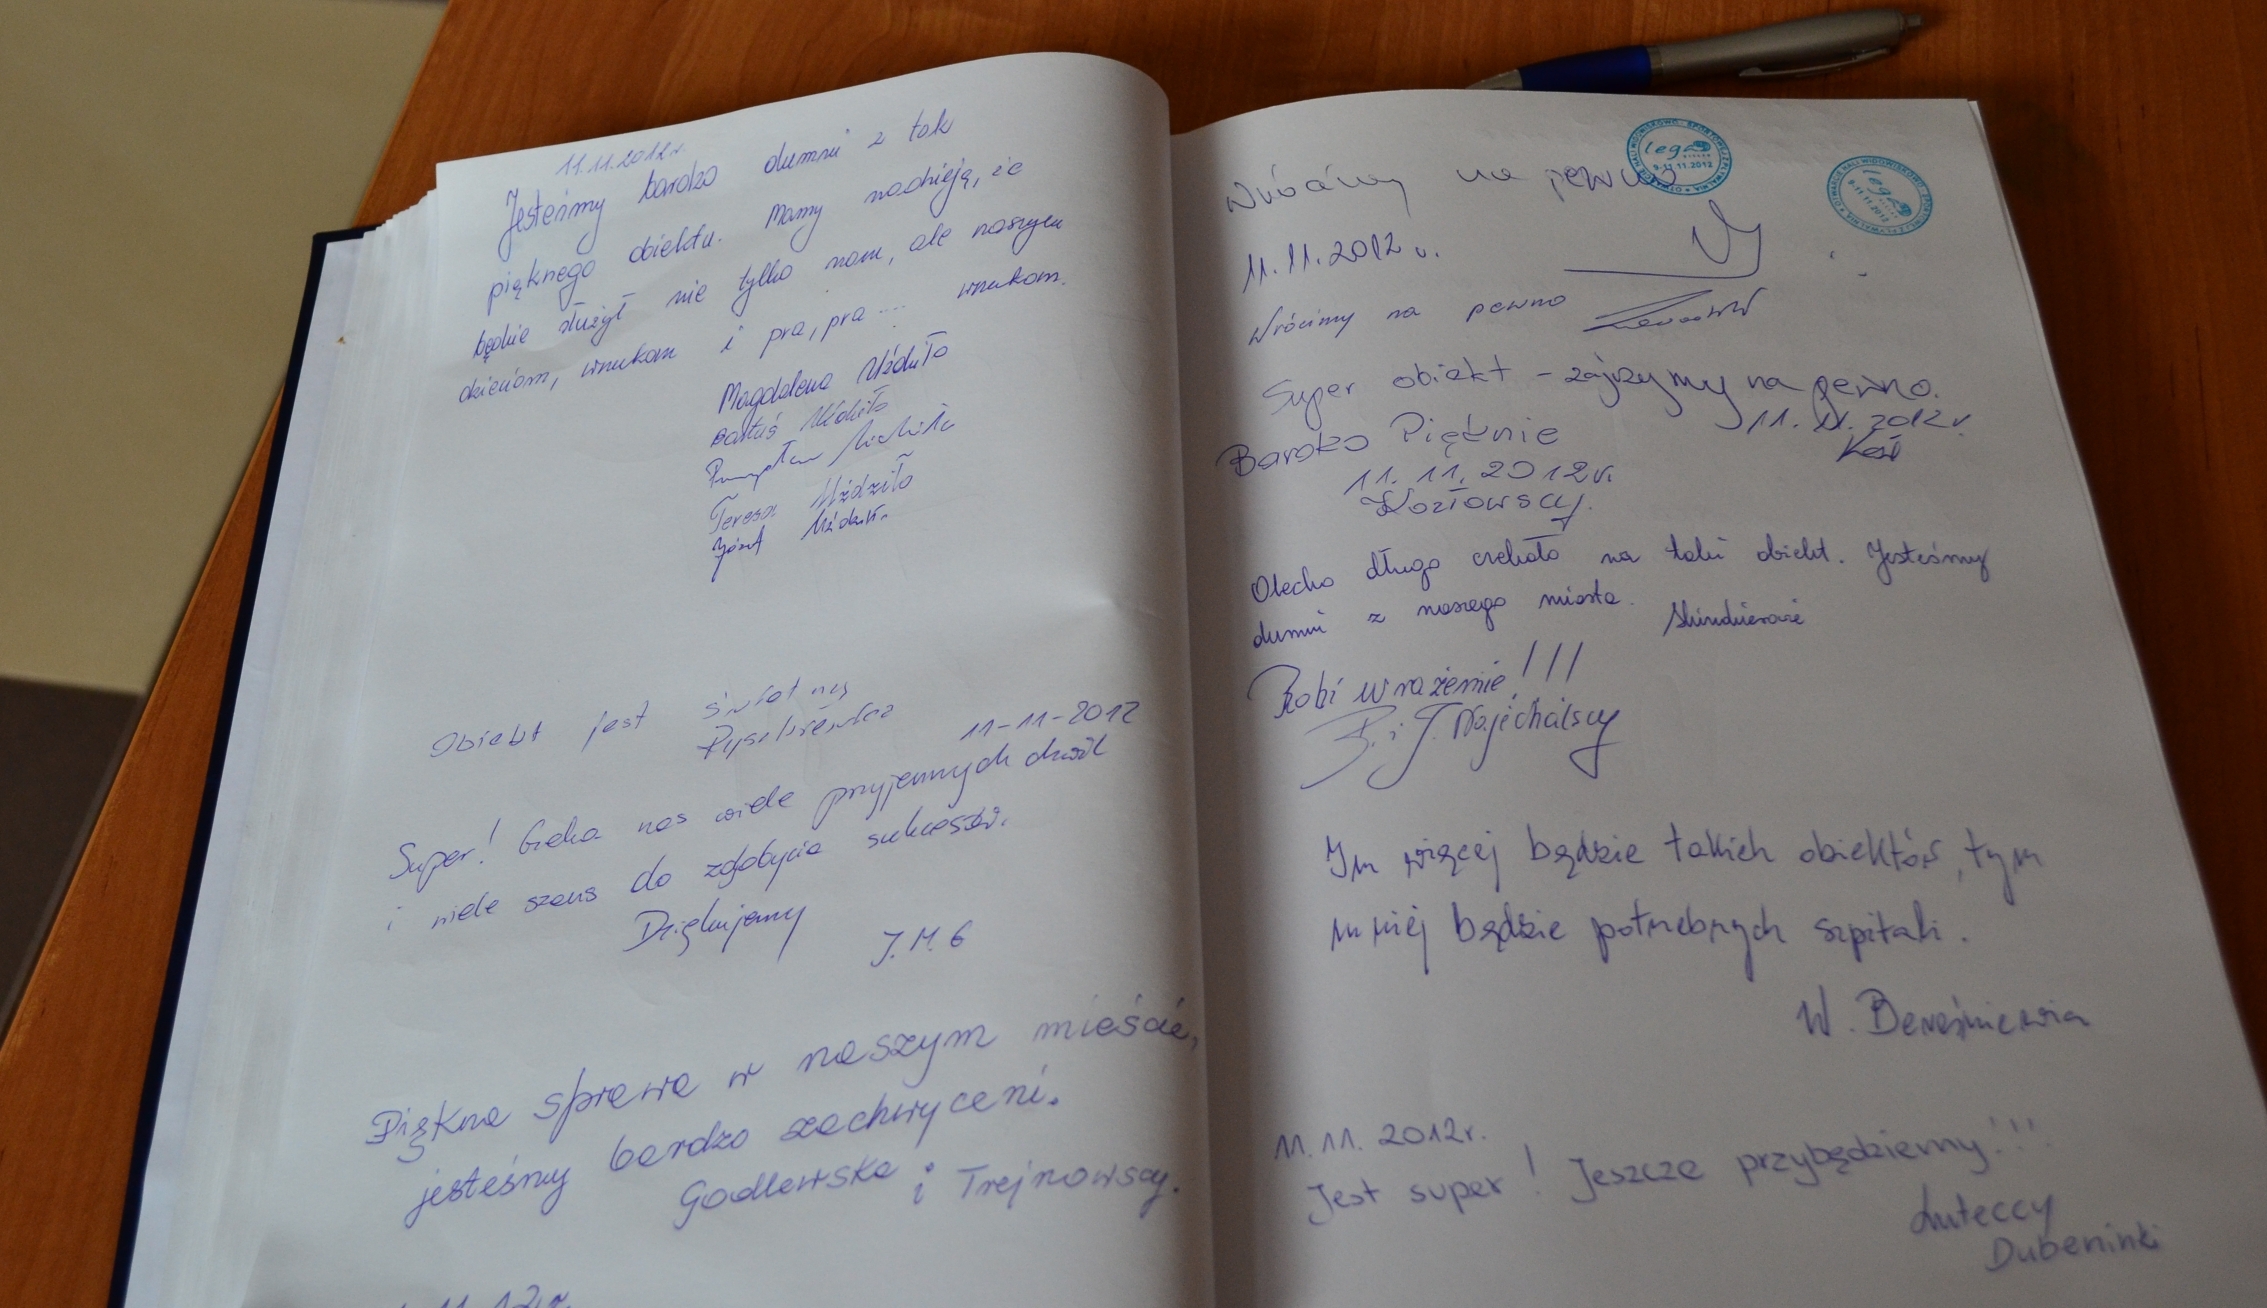 11.11.2012r.
Jesteśmy bardzo dumni z tak
pięknego obiektu. Mamy nadzieję, że
będzie służył nie tylko nam, ale naszym
dzieciom, wnukom i pra, pra .... wnukom.
Magdalena
Bartuś
Teresa
Józef
Obiekt jest świetny
11-11-2012
Super! Czeka nas wiele przyjemnych chwil
i wiele szans do zdobycia sukcesów.
Dziękujemy
J.M. 6
Piękna sprawa w naszym mieście,
jesteśmy bardzo zachwyceni.
Godlewska i Trejnowscy.
Wrócimy na pewno
11.11.2012 r.
Wrócimy na pewno
Super obiekt - zajrzymy na pewno.
11.11.2012r.
Bardzo Pięknie
11.11.2012r.
Kozłowscy.
Olecko długo czekało na taki obiekt. Jesteśmy
dumni z naszego miasta.
Robi wrażenie!!!
Im więcej będzie takich obiektów, tym
mniej będzie potrzebnych szpitali.
W.
11.11.2012r.
Jest super! Jeszcze przybędziemy!!!
Luteccy
Dubeninki
lega
9-11.11.2012
lega
9-11.11.2012